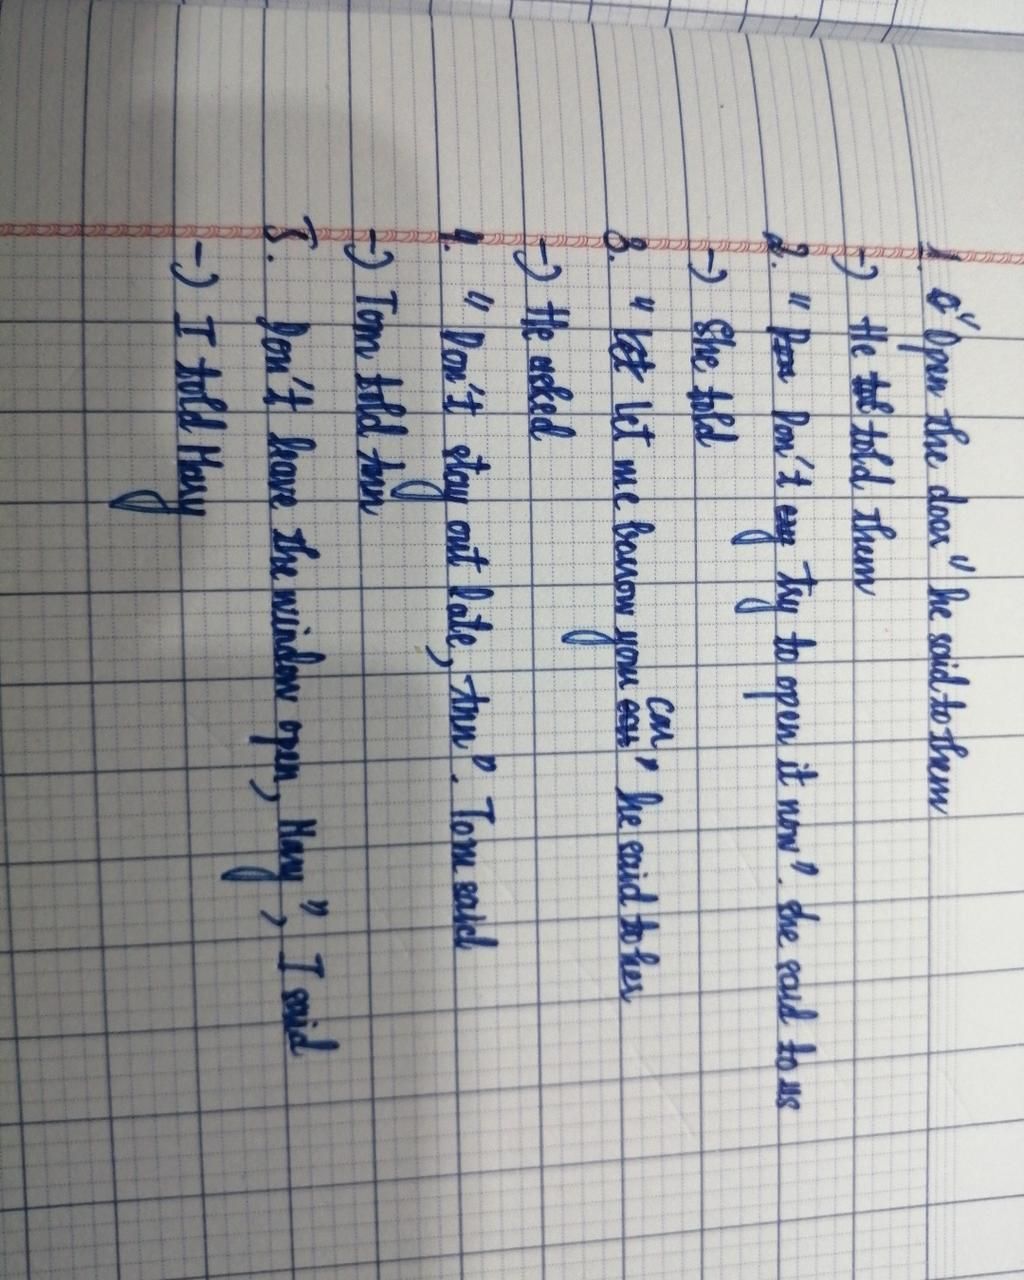 1. "Open the door" he said to them
-) He told them
2. "Don't try to open it now". she said to us
-) She told
3. "let me borrow your car" he said to her
-) He asked
4. "Don't stay out late, Ann". Tom said
-) Tom told Ann
5. Don't leave the window open, Mary", I said
-) I told Mary